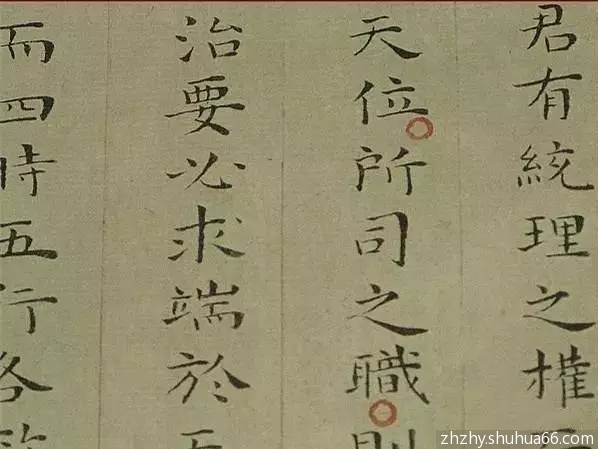 君有統理之權
天位所司之職則
治要必求端於
而四時五行各
zhzhy.shuhua66.com